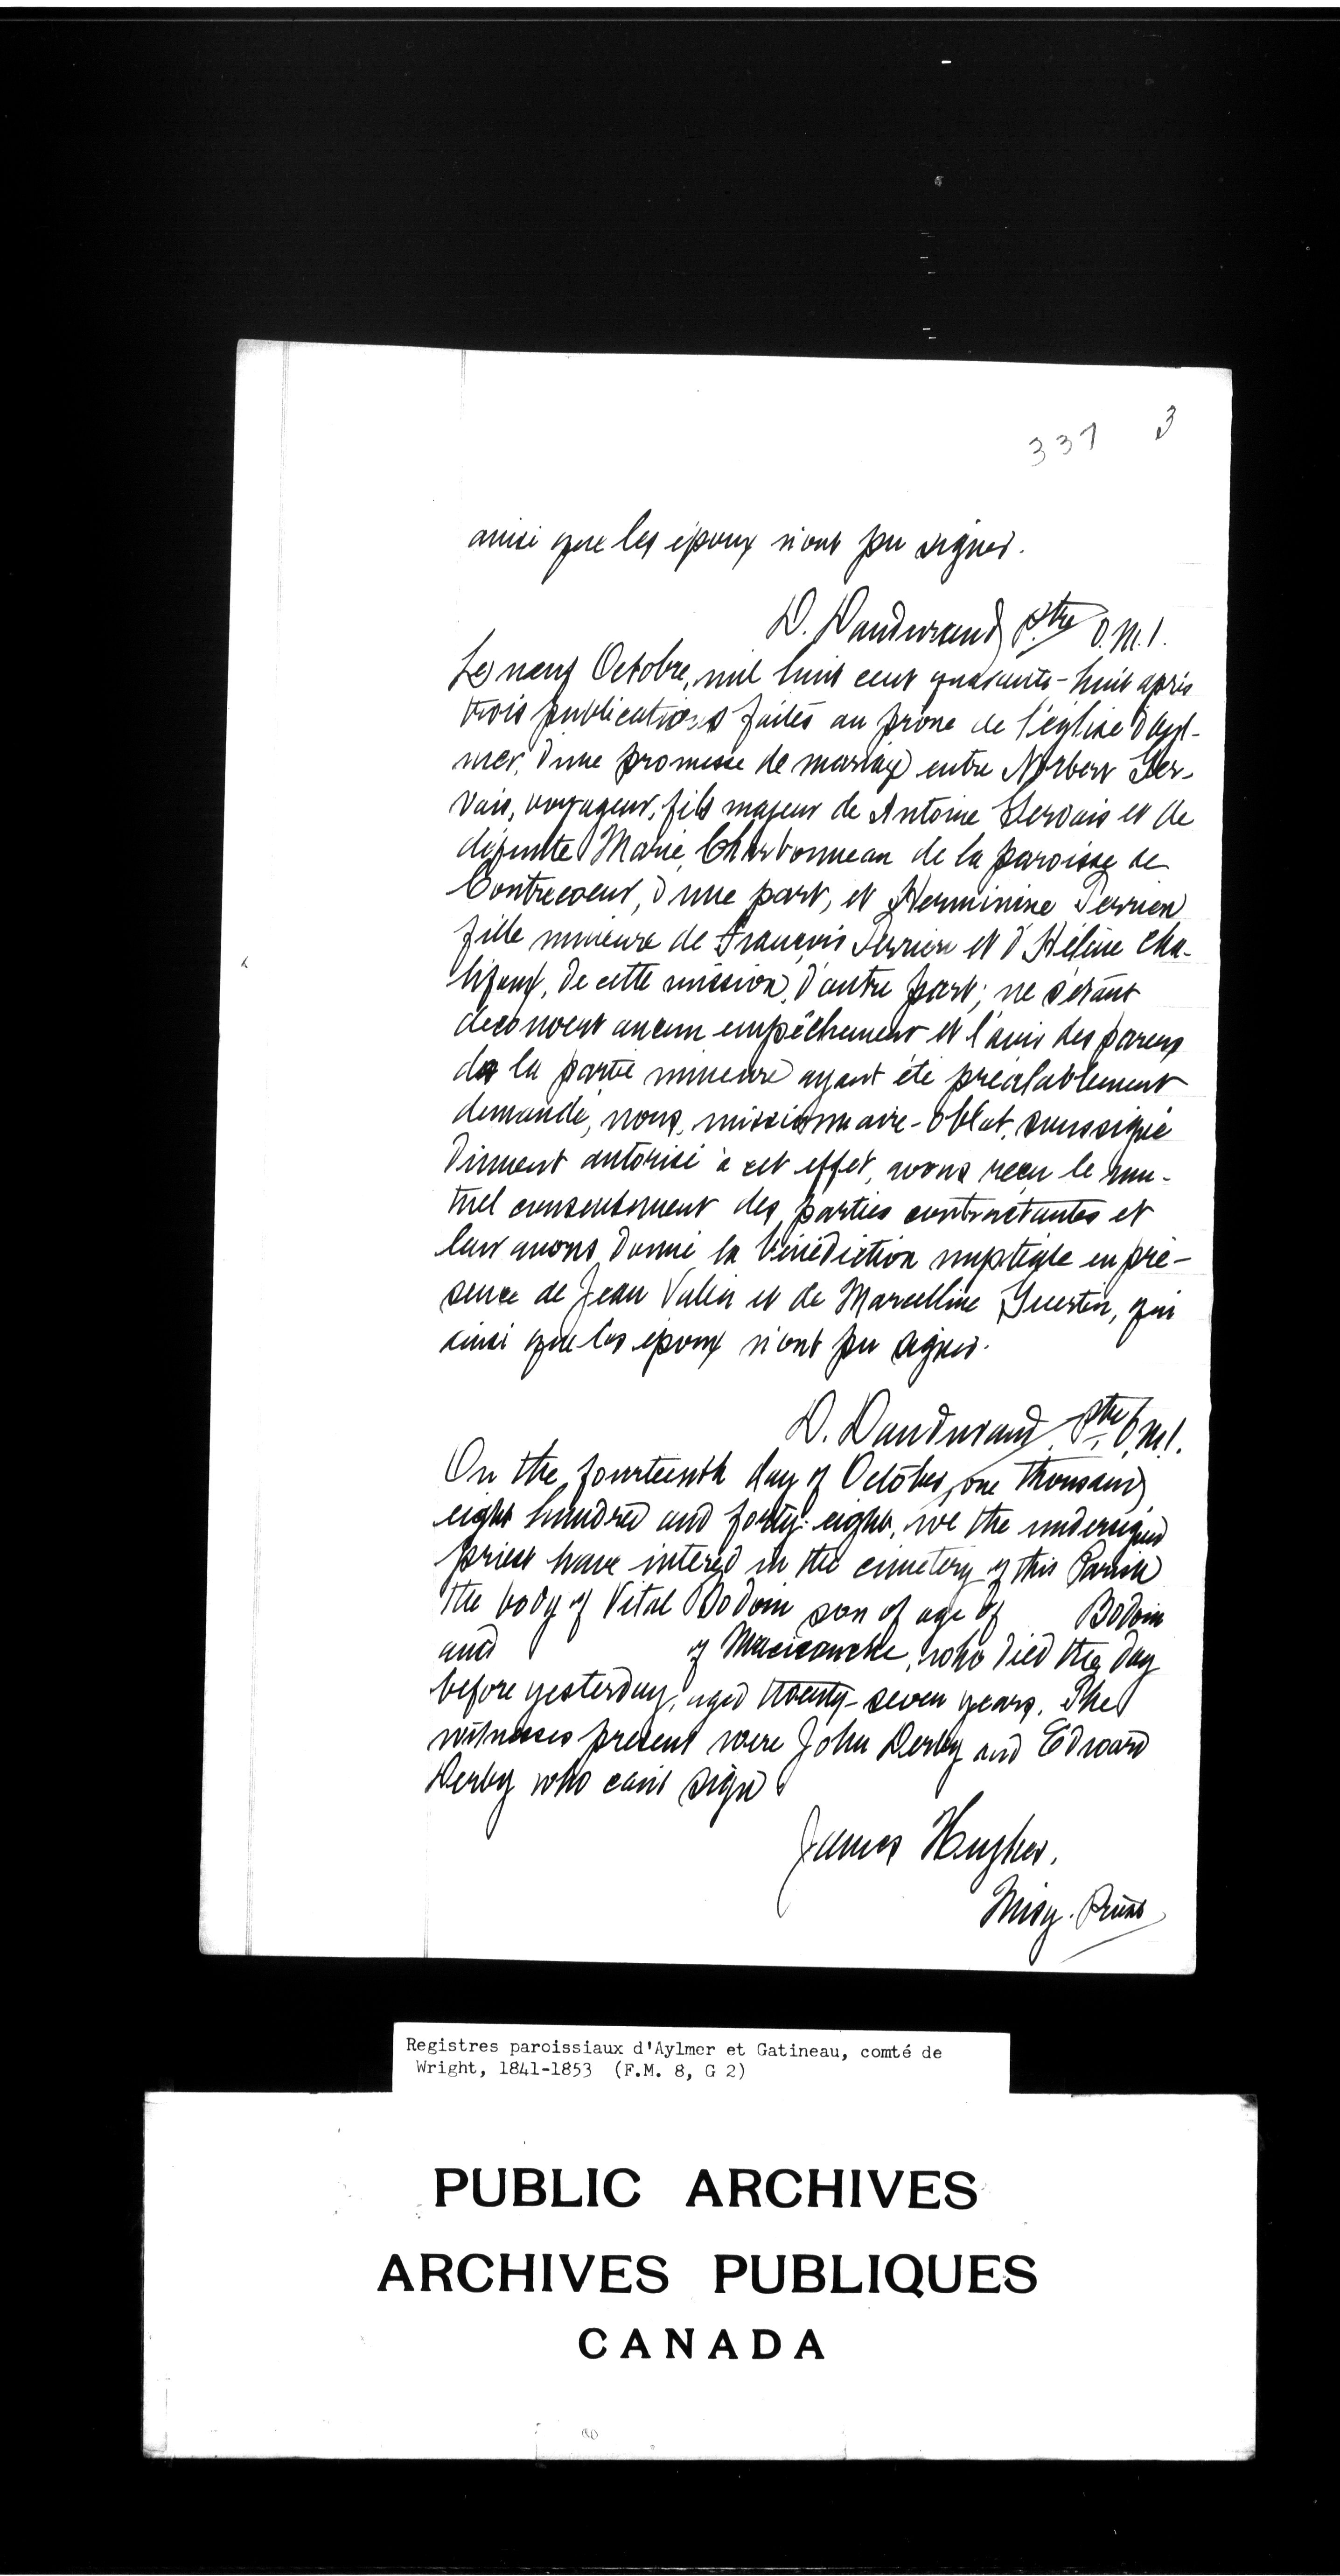 337 3
ainsi que les époux n'ont pu signer.
D. Dandurand Ptre O.M.I.
Le neuf Octobre, mil huit cent quarante-huit après
trois publications faites au prône de l'église d'Ayl-
mer, d'une promesse de mariage entre Norbert Ser-
vais, voyageur, fils majeur de Antoine Servais et de
défunte Marie Charbonneau de la paroisse de
Contrecoeur, d'une part, et Herminine Perrien
fille mineure de François Perrien et d'Hélène Cha-
lifoux, de cette mission, d'autre part; ne s'étant
découvert aucun empêchement et l'avis des parens
de la partie mineure ayant été préalablement
demandé, nous, missionnaire-Oblat, soussigné
dûment autorisé à cet effet, avons reçu le mu-
tuel consentement des parties contractantes et
leur avons donné la bénédiction nuptiale en pré-
sence de Jean Valin et de Marcelline Guertin, qui
ainsi que les époux n'ont pu signer.
D. Dandurand Ptre O.M.I.
On the fourteenth day of October, one thousand
eight hundred and forty-eight, we the undersigned
priest have intered in the cimetery of this Parish
the body of Vital Bodoin son of age of Bodoin
and of who died the day
before yesterday, aged twenty-seven years. The
witnesses present were John Derby and Edward
Derby who can't sign
James Hughes.
Missy. Priest
Registres paroissiaux d'Aylmer et Gatineau, comté de
Wright, 1841-1853 (F.M. 8, G 2)
PUBLIC ARCHIVES
ARCHIVES PUBLIQUES
CANADA